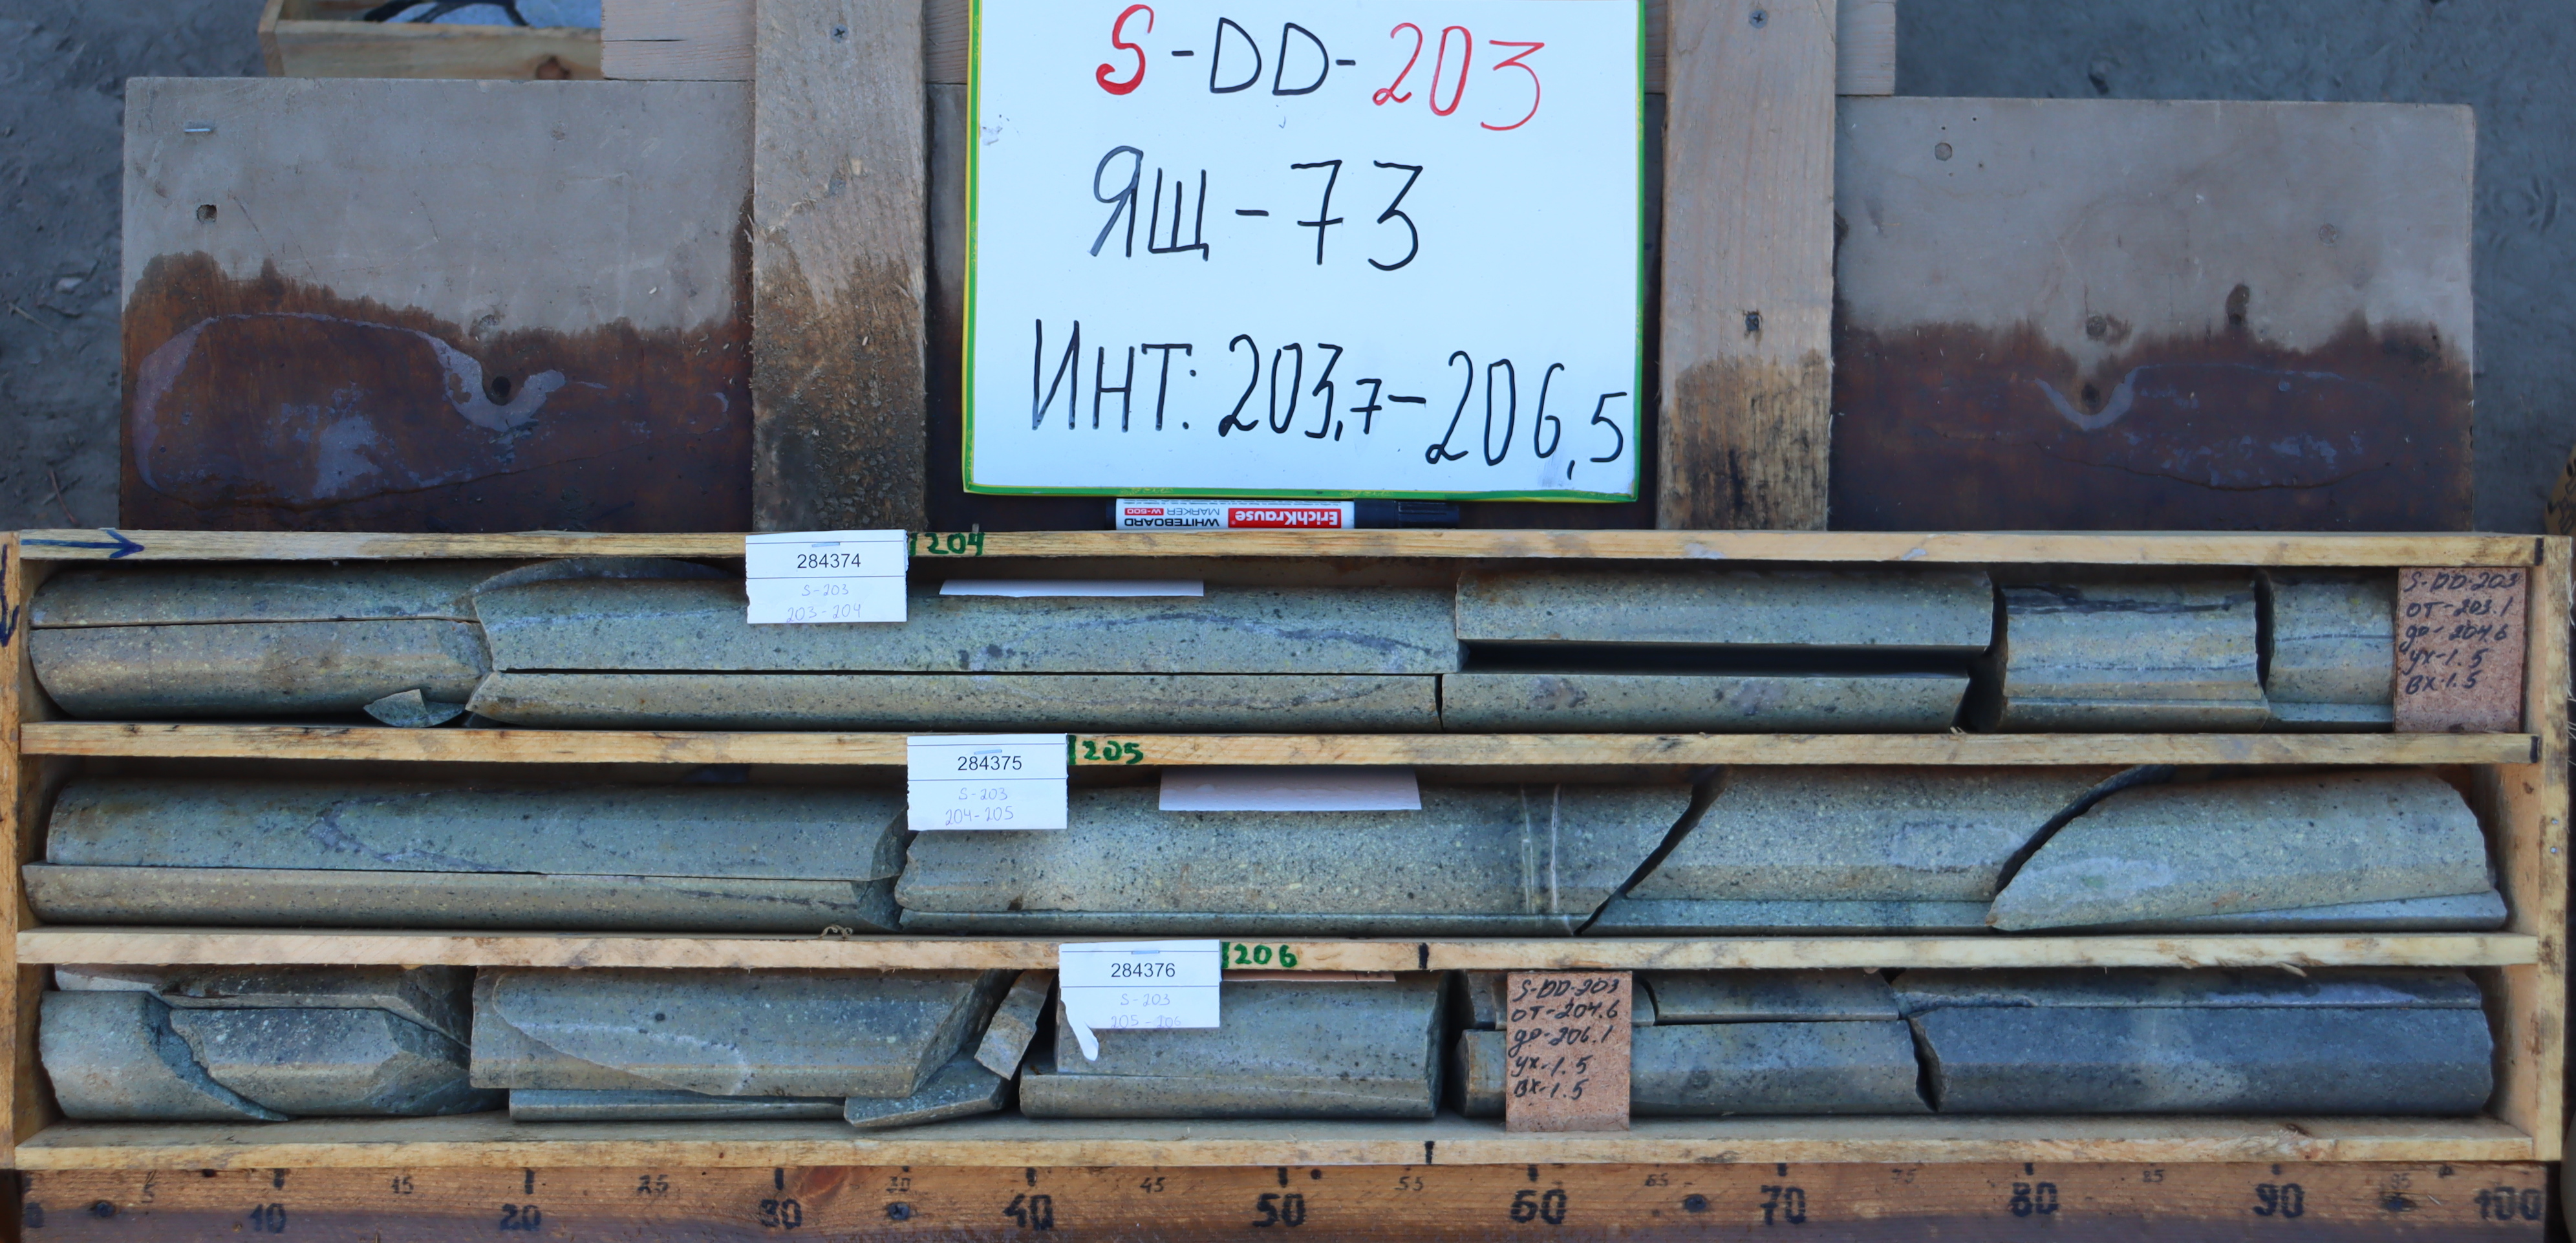 S-DD-203
ЯЩ-73
ИНТ: 203,7-206,5
ErichKrause
WHITEBOARD
MARKER W-500
204
284374
S-203
203-204
S-DD-203
от-203.1
до-204.6
ух-1.5
вх-1.5
205
284375
S-203
204-205
206
284376
S-203
205-206
S-DD-203
от-204.6
до-206.1
ух-1.5
вх-1.5
5 15 25 45 55 65 75 85 95
10 20 30 40 50 60 70 80 90 100